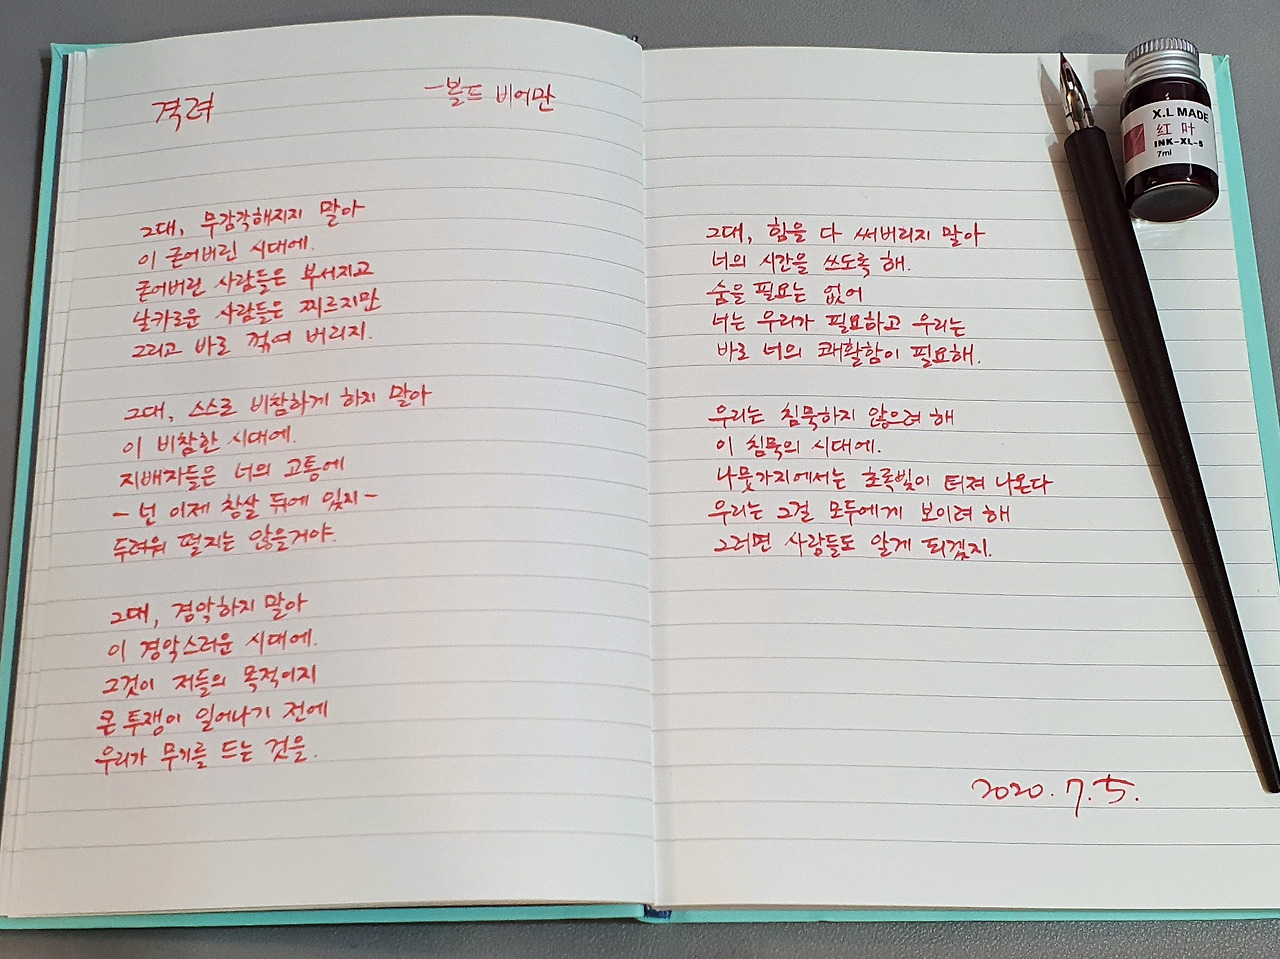 격려
-볼드 비어만
그대, 무감각해지지 말아
이 굳어버린 시대에.
굳어버린 사람들은 부서지고
날카로운 사람들은 찌르지만
그리고 바로 꺾여 버리지.
그대, 스스로 비참하게 하지 말아
이 비참한 시대에.
지배자들은 너의 고통에
- 넌 이제 창살 뒤에 있지-
두려워 떨지는 않을거야.
그대, 경악하지 말아
이 경악스러운 시대에.
그것이 저들의 목적이지
큰 투쟁이 일어나기 전에
우리가 무기를 드는 것을.
그대, 힘을 다 써버리지 말아
너의 시간을 쓰도록 해.
숨을 필요는 없어
너는 우리가 필요하고 우리는
바로 너의 쾌활함이 필요해.
우리는 침묵하지 않으려 해
이 침묵의 시대에.
나뭇가지에서는 초록빛이 터져 나온다
우리는 그걸 모두에게 보이려 해
그러면 사람들도 알게 되겠지.
2020. 7. 5.
X.L MADE
红叶
INK-XL-5
7ml